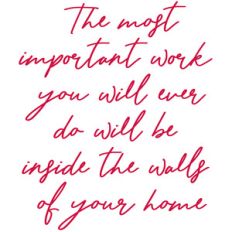 The most
important work
you will ever
do will be
inside the walls
of your home